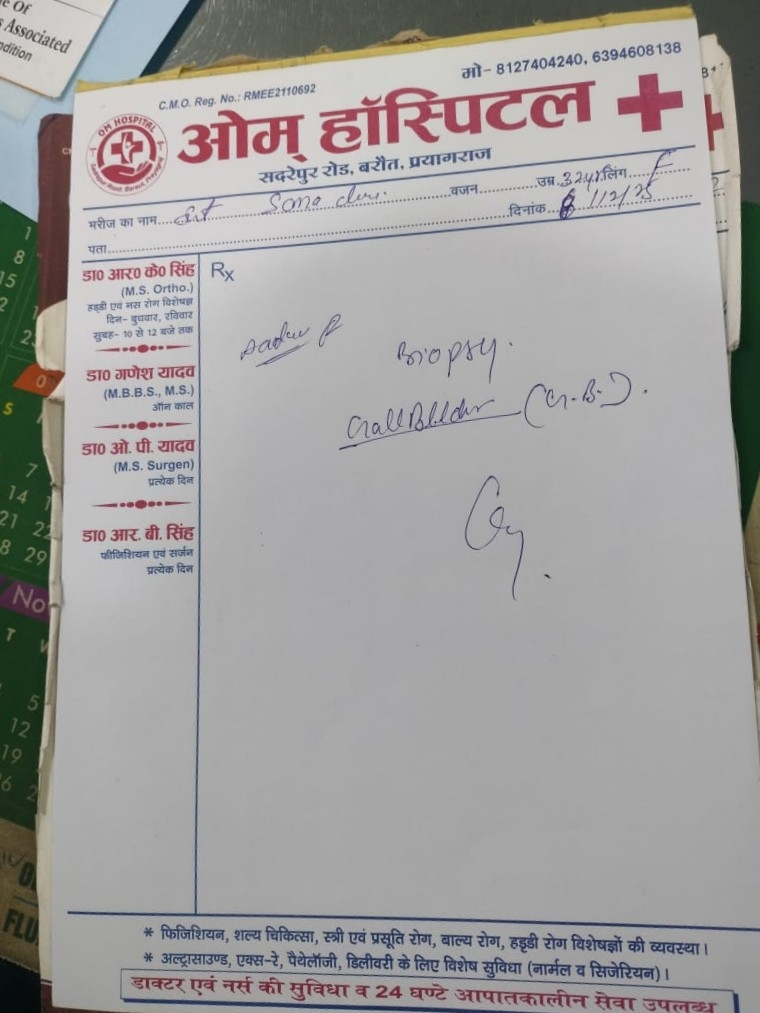 e Of
s Associated
ndition
C.M.O. Reg. No.: RMEE2110692
मो- 8127404240, 6394608138
OM HOSPITAL
ओम् हॉस्पिटल
सदरेपुर रोड, बरौत, प्रयागराज
मरीज का नाम Sona वजन उम्र 32yr लिंग F
पता दिनांक 8/12/25
डा0 आर0 के0 सिंह
(M.S. Ortho.)
हड्डी एवं नस रोग विशेषज्ञ
दिन- बुधवार, रविवार
सुबह- 10 से 12 बजे तक
डा0 गणेश यादव
(M.B.B.S., M.S.)
ऑन काल
डा0 ओ. पी. यादव
(M.S. Surgen)
प्रत्येक दिन
डा0 आर. बी. सिंह
फीजिशियन एवं सर्जन
प्रत्येक दिन
Rx
Biopsy.
Gall Bladder (G.B.).
* फिजिशियन, शल्य चिकित्सा, स्त्री एवं प्रसूति रोग, बाल्य रोग, हड्डी रोग विशेषज्ञों की व्यवस्था।
* अल्ट्रासाउण्ड, एक्स-रे, पैथेलॉजी, डिलीवरी के लिए विशेष सुविधा (नार्मल व सिजेरियन)।
डाक्टर एवं नर्स की सुविधा व 24 घण्टे आपातकालीन सेवा उपलब्ध